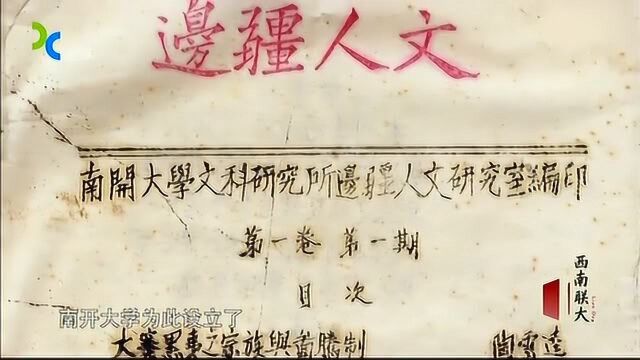 邊疆人文
南開大學文科研究所邊疆人文研究室編印
第一卷 第一期
目次
西南联大
南开大学为此设立了
大寨黑夷之宗族與圖騰制
陶雲逵